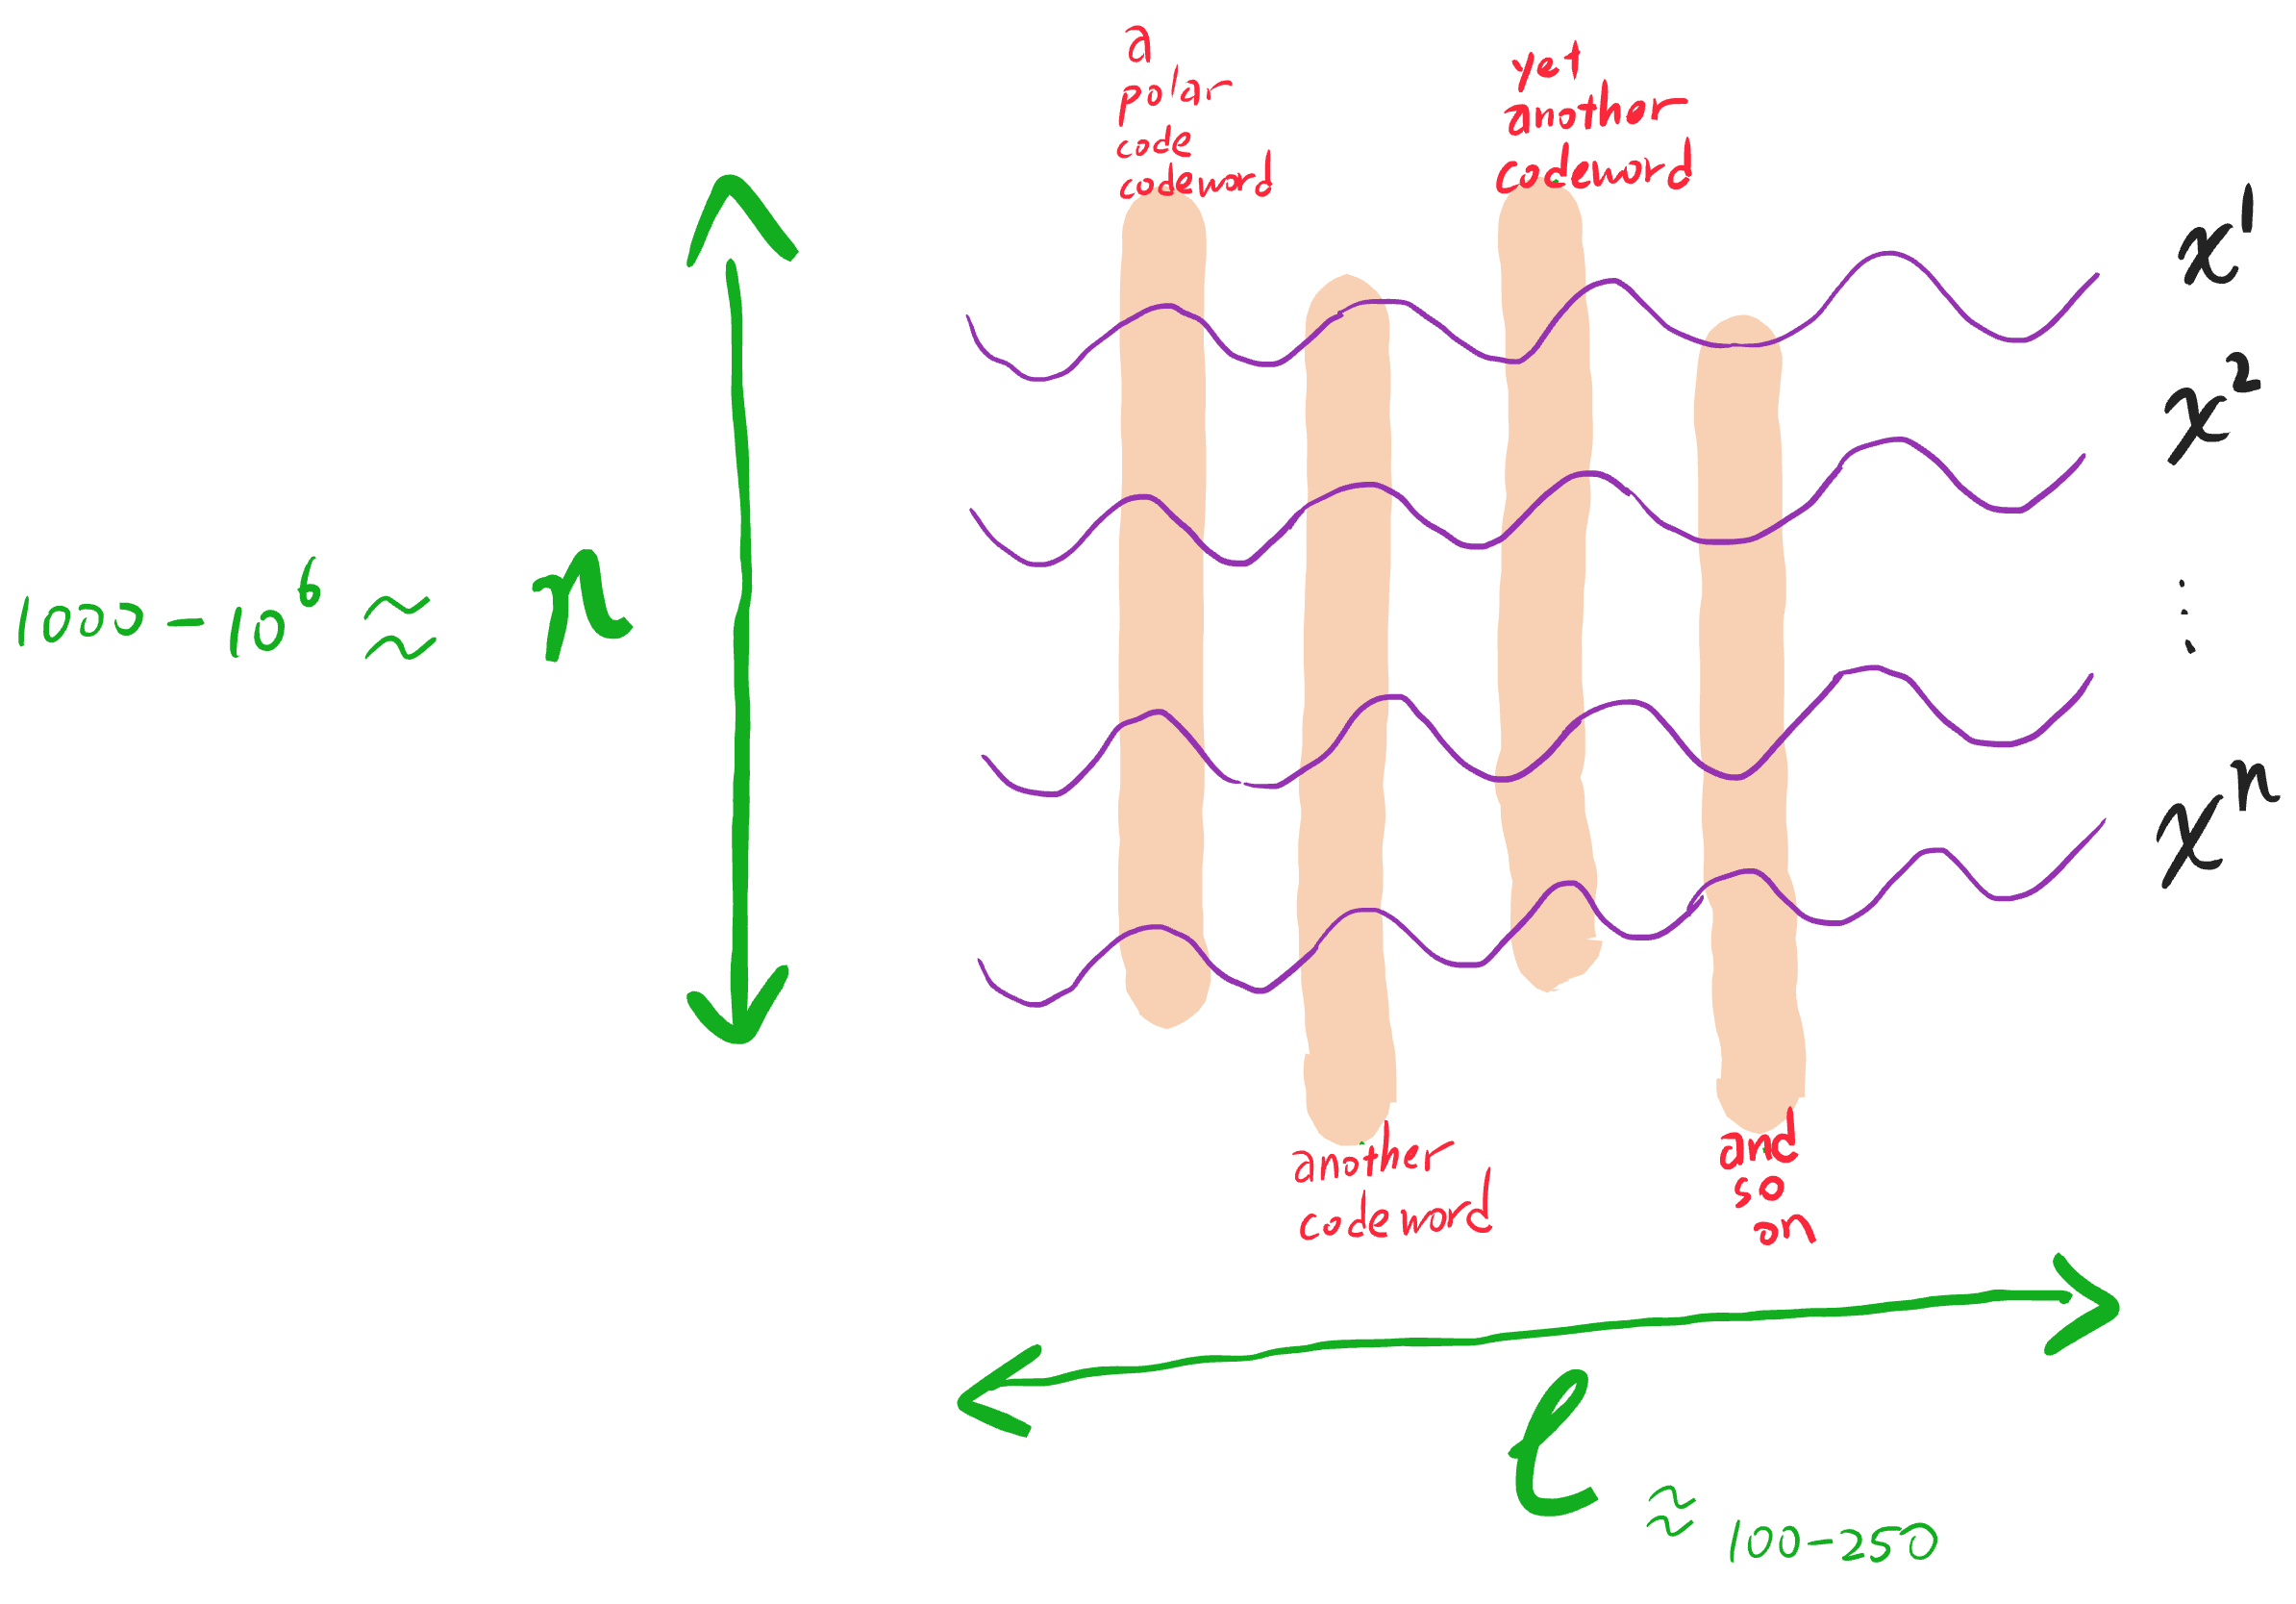 a
polar
code
codeword
yet
another
codeword
x¹
x²
⋮
xⁿ
1000-10⁶ ≈ n
another
codeword
and
so
on
ℓ ≈ 100-250